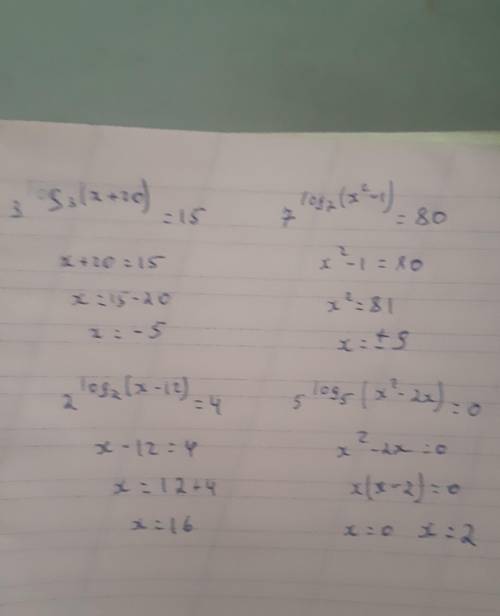 3^log₃(x+20) = 15
x+20 = 15
x = 15-20
x = -5
7^log₇(x²-1) = 80
x²-1 = 80
x² = 81
x = ±9
2^log₂(x-12) = 4
x-12 = 4
x = 12+4
x = 16
5^log₅(x²-2x) = 0
x²-2x = 0
x(x-2) = 0
x = 0 x = 2